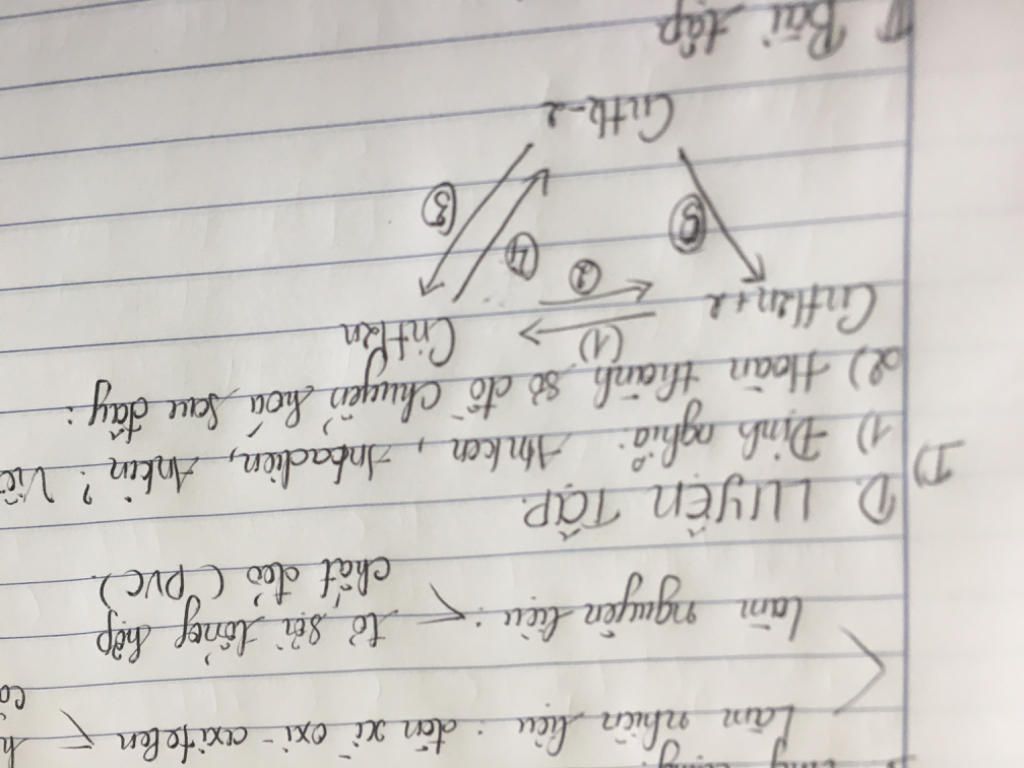 Làm nhiên liệu : đèn xì oxi - axitelen
Làm nguyên liệu : tơ sợi tổng hợp
chất dẻo (PVC).
D. LUYỆN TẬP.
I)
1) Định nghĩa: Anken, Ankadien, Ankin?
2) Hoàn thành sơ đồ chuyển hoá sau đây:
CnH2n+2 (1) (2) CnH2n
(5) (4) (3)
CnH2n-2
Bài tập